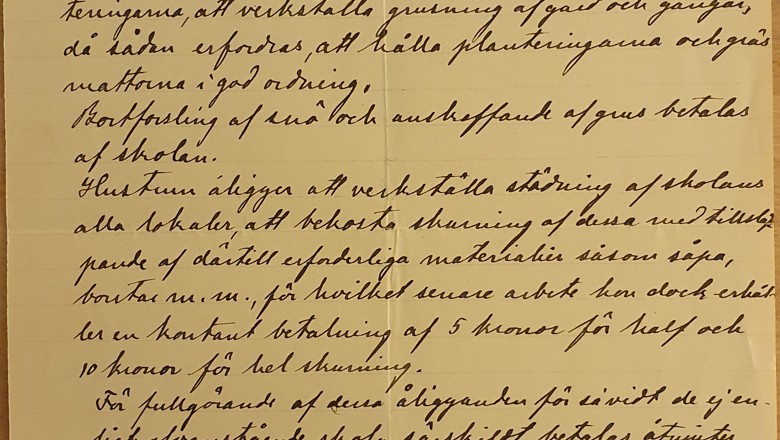 teringarna, att verkställa grusning af gård och gångar,
då sådan erfordras, att hålla planteringarna och gräs
mattorna i god ordning.
Bortforsling af snö och anskaffande af grus betalas
af skolan.
Hustrun åligger att verkställa städning af skolans
alla lokaler, att bekosta skurning af dessa med tillsläp
pande af därtill erforderliga materialier såsom såpa,
borstar m.m., för hvilket senare arbete hon dock erhål
ler en kontant betalning af 5 kronor för half och
10 kronor för hel skurning.
För fullgörande af dessa åligganden för såvidt de ej en-
skola särskildt betalas åtnjuter